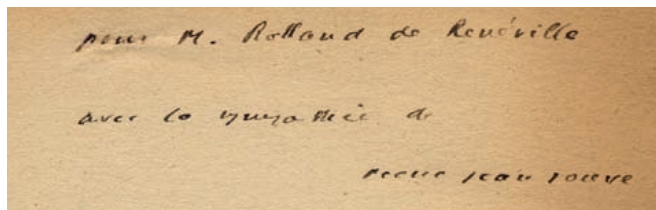 pour M. Rolland de Renéville
avec la sympathie de
Pierre Jean Jouve